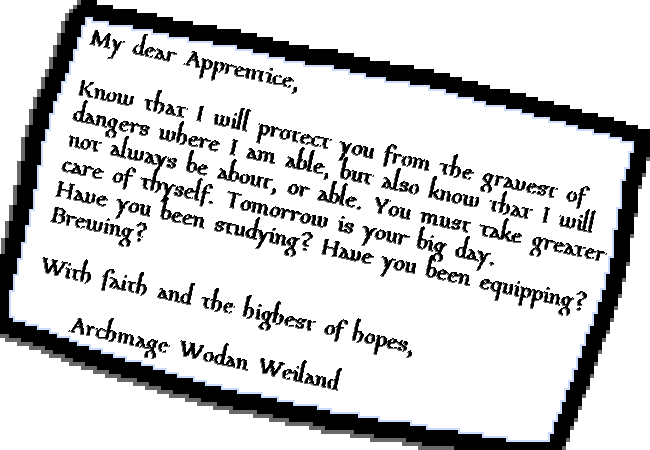 My dear Apprentice,
Know that I will protect you from the gravest of
dangers where I am able, but also know that I will
not always be about, or able. You must take greater
care of thyself. Tomorrow is your big day.
Have you been studying? Have you been equipping?
Brewing?
With faith and the highest of hopes,
Archmage Wodan Weiland